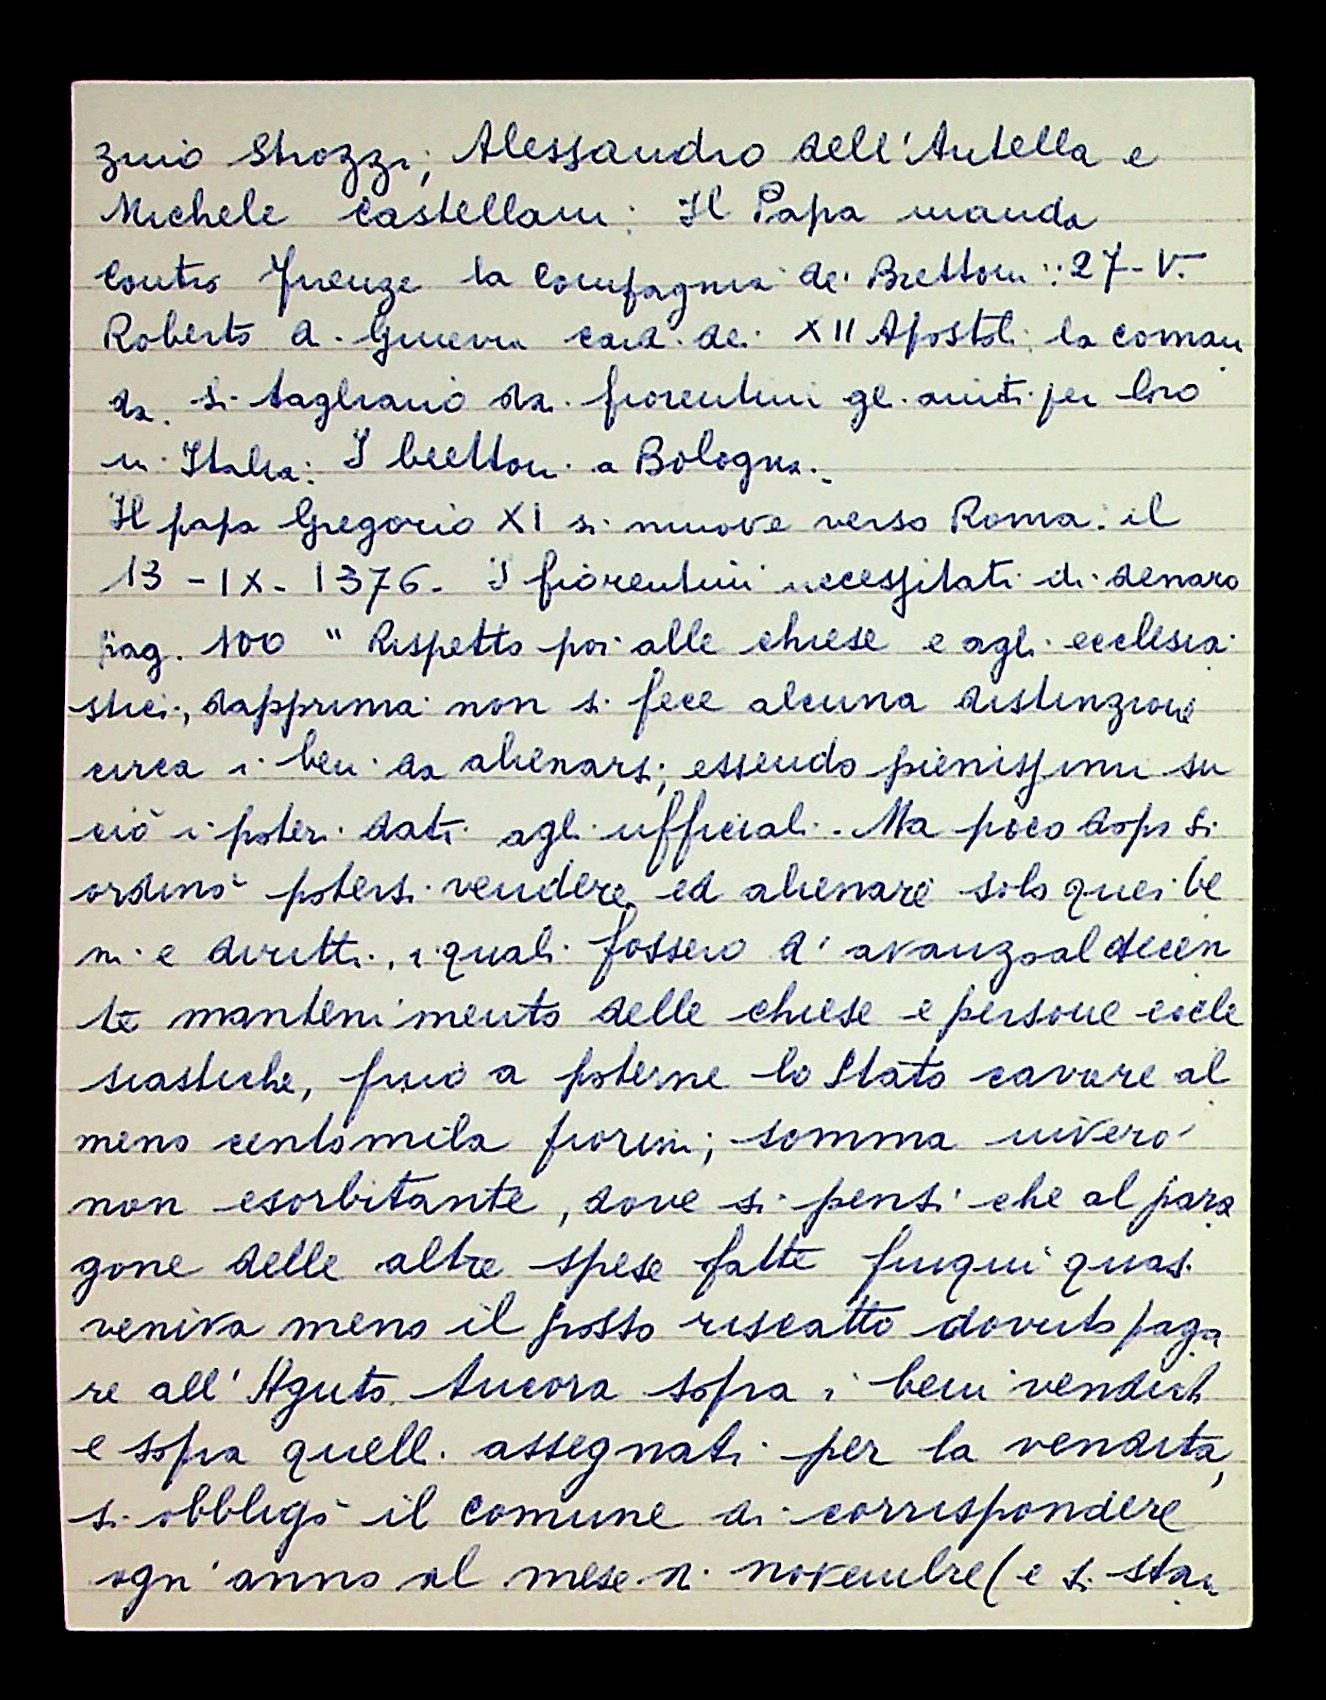 zino Strozzi, Alessandro dell'Antella e
Michele Castellani: Il Papa manda
contro Firenze la Compagnia dei Brettoni: 27-V.
Roberto di Ginevra card. dei XII Apostoli la coman
da. Si tagliano dai fiorentini gli aiuti per loro
in Italia. I brettoni a Bologna.
Il papa Gregorio XI si muove verso Roma il
13-IX-1376. I fiorentini necessitati di denaro
pag. 100 "Rispetto poi alle chiese e agli ecclesia
stici, dapprima non si fece alcuna distinzione
circa i beni da alienarsi, essendo pienissimi su
ciò i poteri dati agli ufficiali. Ma poco dopo si
ordinò potersi vendere ed alienare solo quei be
ni e diritti, i quali fossero d'avanzo al decen
te mantenimento delle chiese e persone eccle
siastiche, fino a poterne lo Stato cavare al
meno centomila fiorini; somma invero
non esorbitante, dove si pensi che al para
gone delle altre spese fatte finqui quasi
veniva meno il grosso riscatto dovuto paga
re all'Aguto. Ancora sopra i beni venduti
e sopra quelli assegnati per la vendita,
si obbligò il comune di corrispondere
ogn'anno al mese di novembre (e si stan